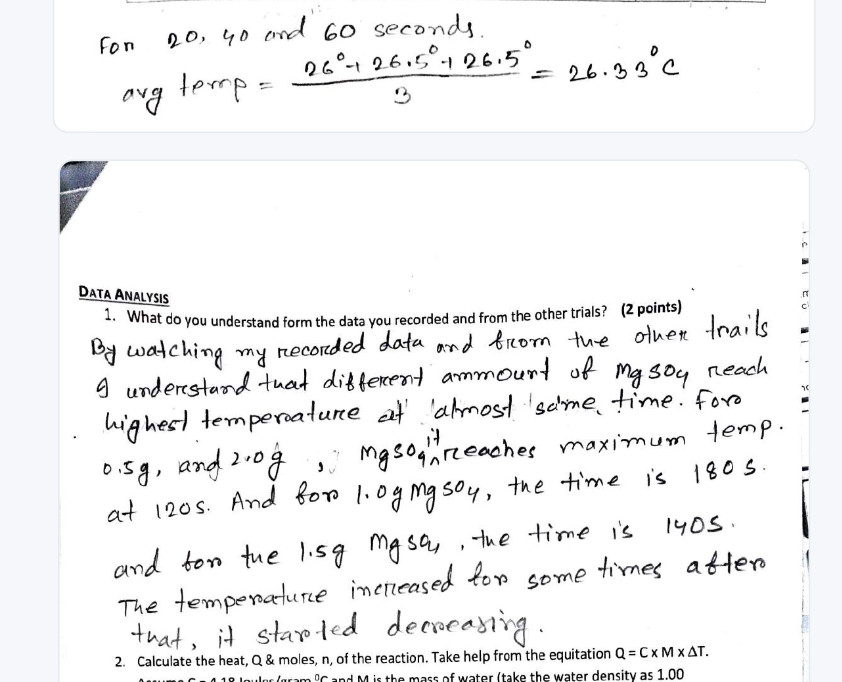 For 20, 40 and 60 seconds.
avg temp = 26° + 26.5° + 26.5° / 3 = 26.33°C
DATA ANALYSIS
1. What do you understand form the data you recorded and from the other trials? (2 points)
By watching my recorded data and from the other trails
I understand that different ammount of MgSO4 reach
highest temperature at almost same time. For
0.5g, and 2.0g , MgSO4 it reaches maximum temp.
at 120s. And for 1.0g MgSO4, the time is 180s.
and for the 1.5g MgSO4, the time is 140s.
The temperature increased for some times after
that, it started decreasing.
2. Calculate the heat, Q & moles, n, of the reaction. Take help from the equitation Q = C x M x ΔT.
Assume C = 4.18 Joules/gram °C and M is the mass of water (take the water density as 1.00